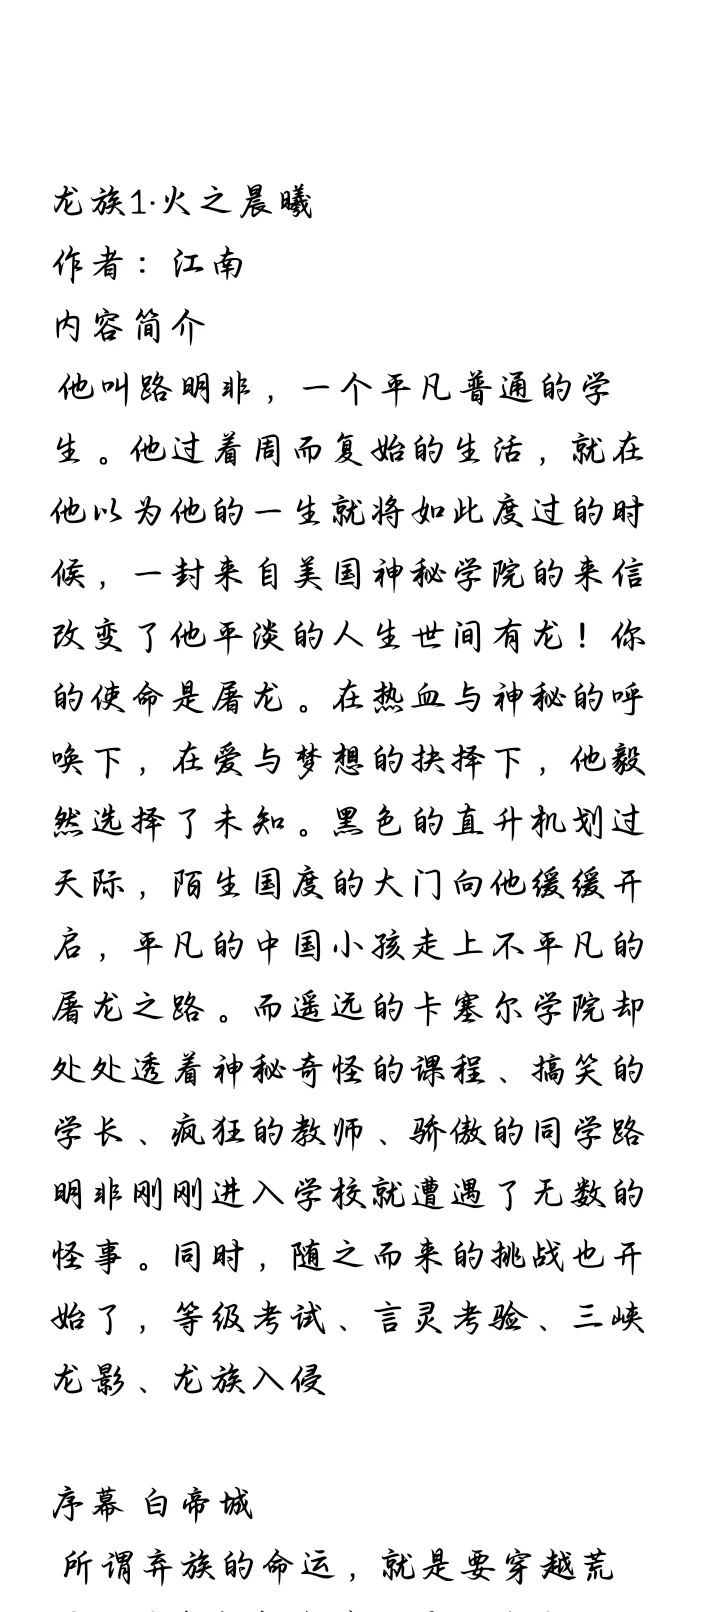 龙族1·火之晨曦
作者：江南
内容简介
他叫路明非，一个平凡普通的学
生。他过着周而复始的生活，就在
他以为他的一生就将如此度过的时
候，一封来自美国神秘学院的来信
改变了他平淡的人生世间有龙！你
的使命是屠龙。在热血与神秘的呼
唤下，在爱与梦想的抉择下，他毅
然选择了未知。黑色的直升机划过
天际，陌生国度的大门向他缓缓开
启，平凡的中国小孩走上不平凡的
屠龙之路。而遥远的卡塞尔学院却
处处透着神秘奇怪的课程、搞笑的
学长、疯狂的教师、骄傲的同学路
明非刚刚进入学校就遭遇了无数的
怪事。同时，随之而来的挑战也开
始了，等级考试、言灵考验、三峡
龙影、龙族入侵
序幕 白帝城
所谓弃族的命运，就是要穿越荒